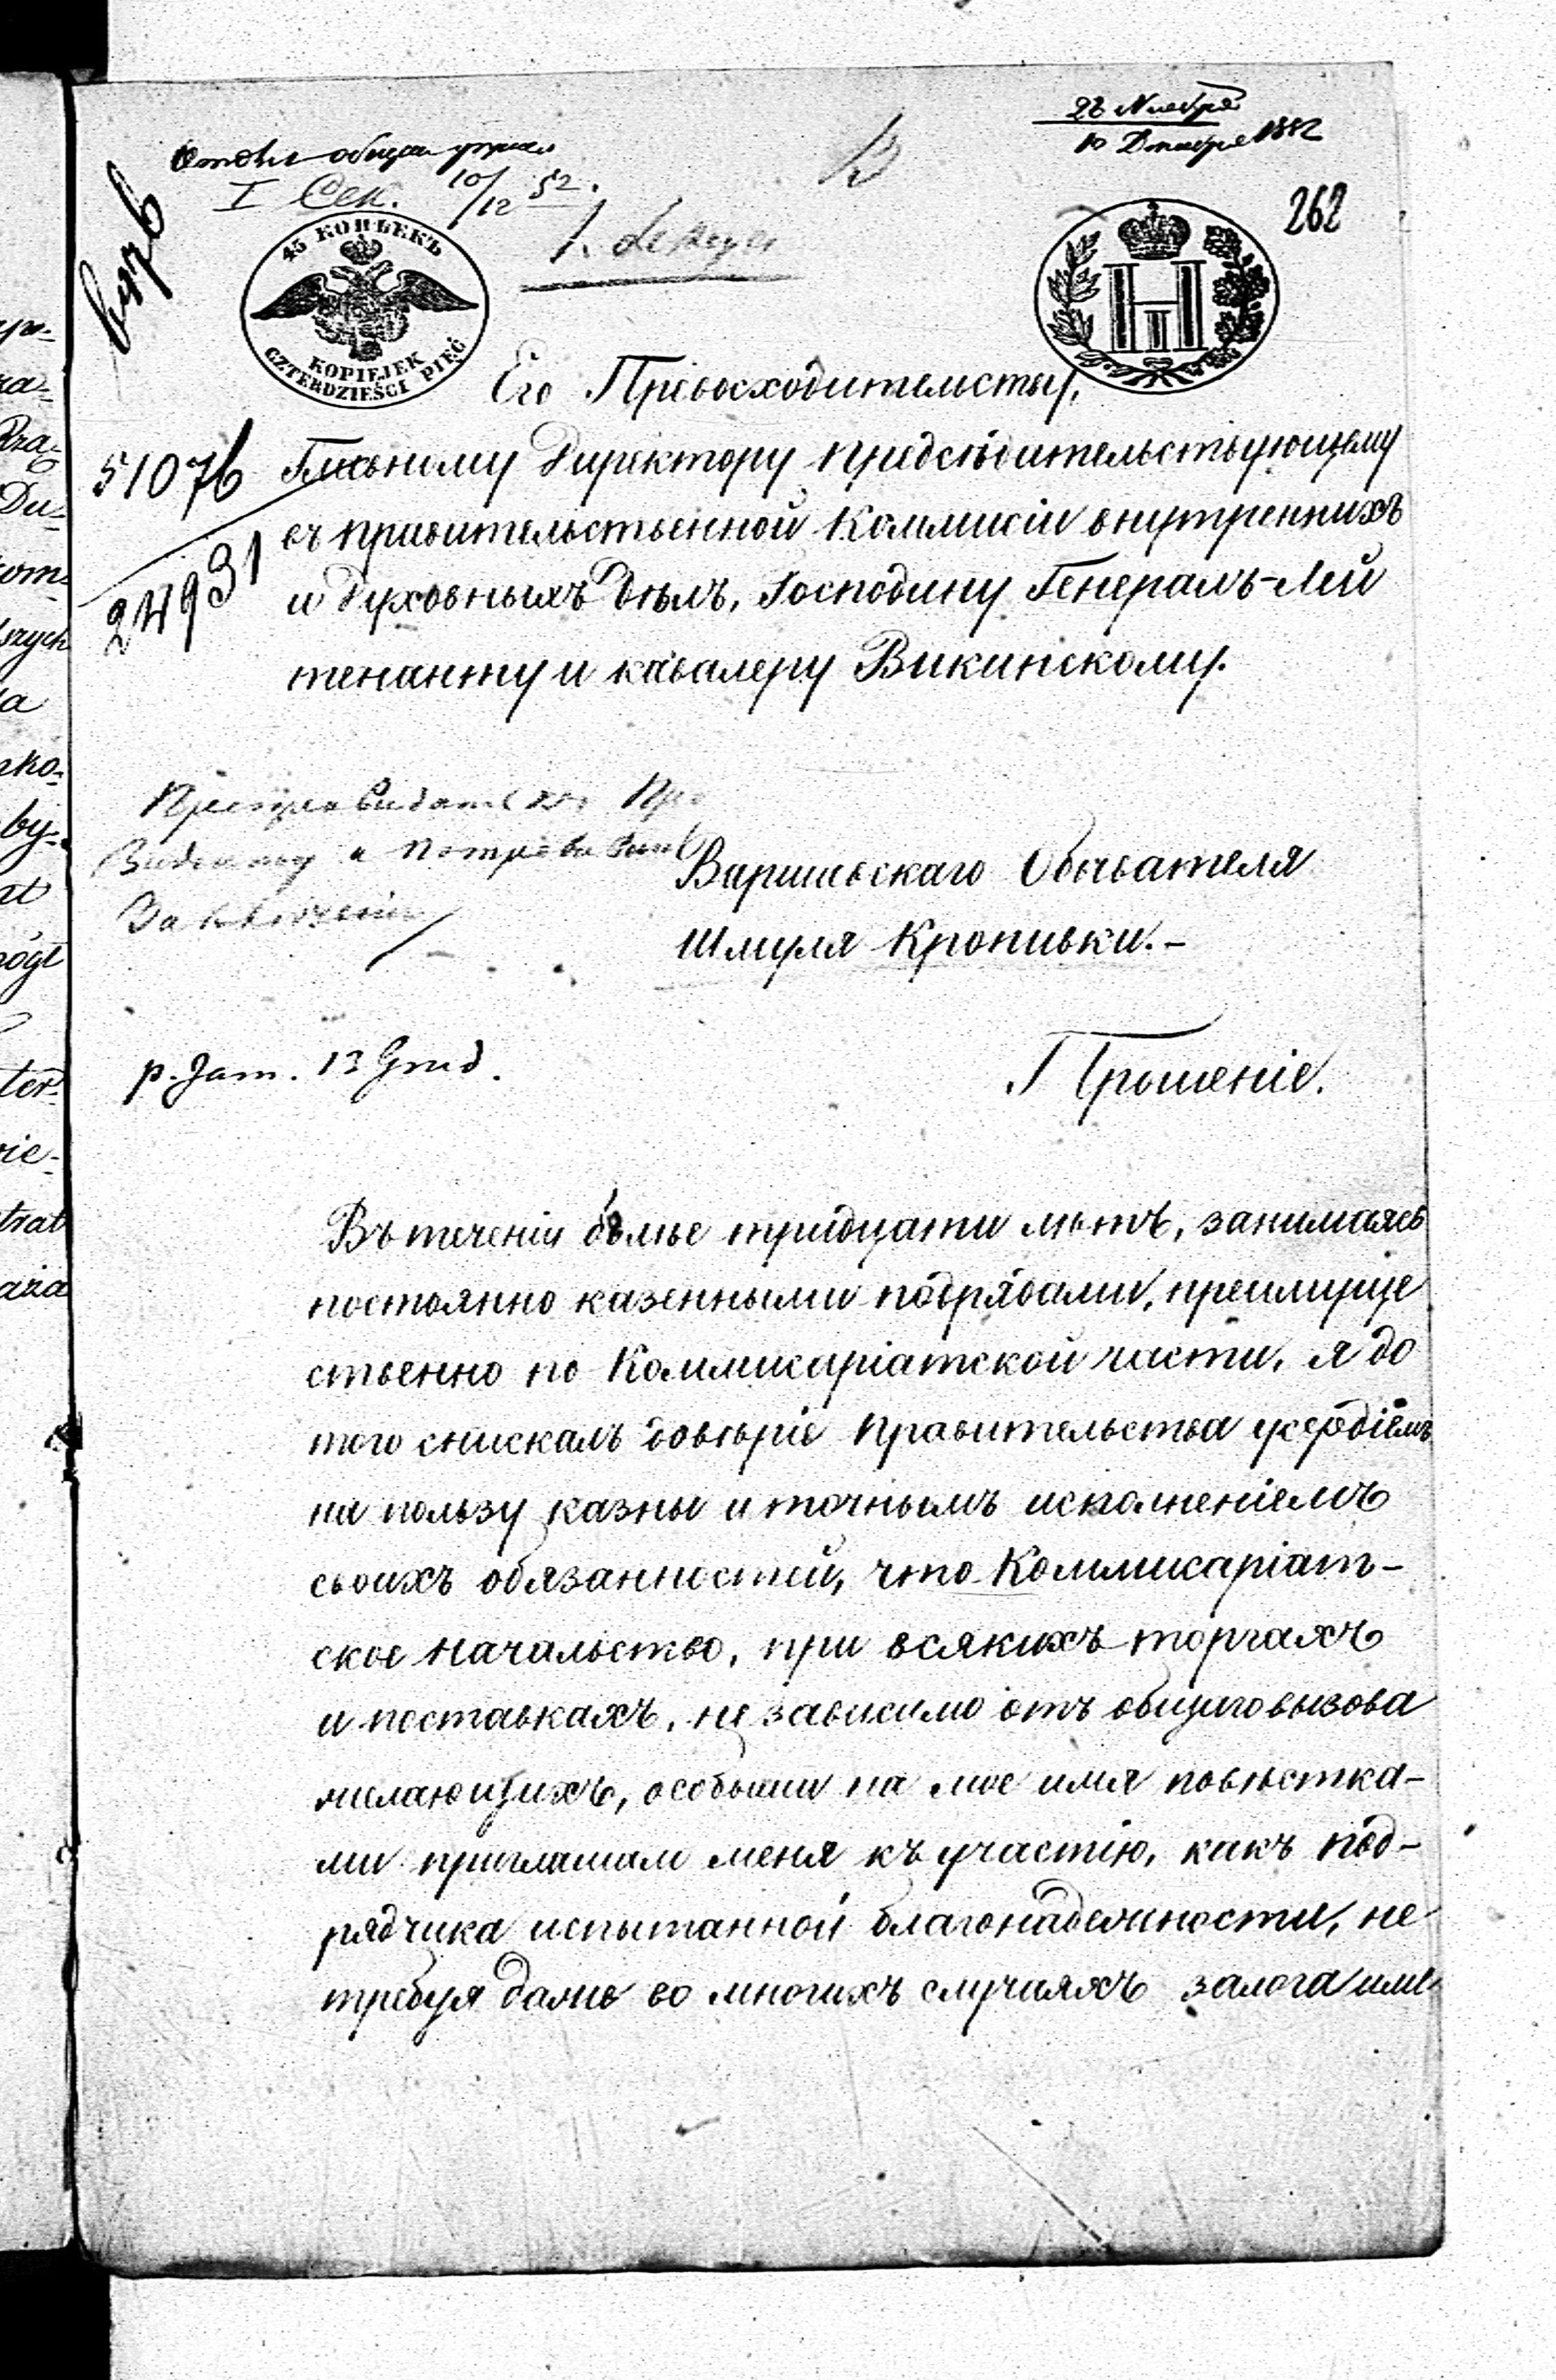 28 Ноября
10 Декабря 1852
I Сек. 10/12 52.
262
45 КОПѢЕКЪ
KOPIEJEK
CZTERDZIEŚCI PIĘĆ
Его Превосходительству,
51076
24931
Главному Директору Предсѣдательствующему
въ Правительственной Коммисіи внутреннихъ
и Духовныхъ Дѣлъ, Господину Генералъ-Лей
тенанту и кавалеру Викинскому.
Заключенія
Варшавскаго Обывателя
Шмуля Кропивки.-
p. Jam. 13 Grud.
Прошеніе.
Въ теченіи болѣе тридцати лѣтъ, занимаясь
постоянно казенными подрядами, преимуще
ственно по Коммисаріатской части, я до
того снискалъ довѣріе Правительства усердіемъ
на пользу казны и точнымъ исполненіемъ
своихъ обязанностей, что Коммисаріат-
ское Начальство, при всякихъ торгахъ
и поставкахъ, не зависимо отъ общаго вызова
желающихъ, особыми на мое имя повѣстка-
ми приглашали меня къ участію, какъ под-
рядчика испытанной благонадежности, не
требуя даже во многихъ случаяхъ залога или